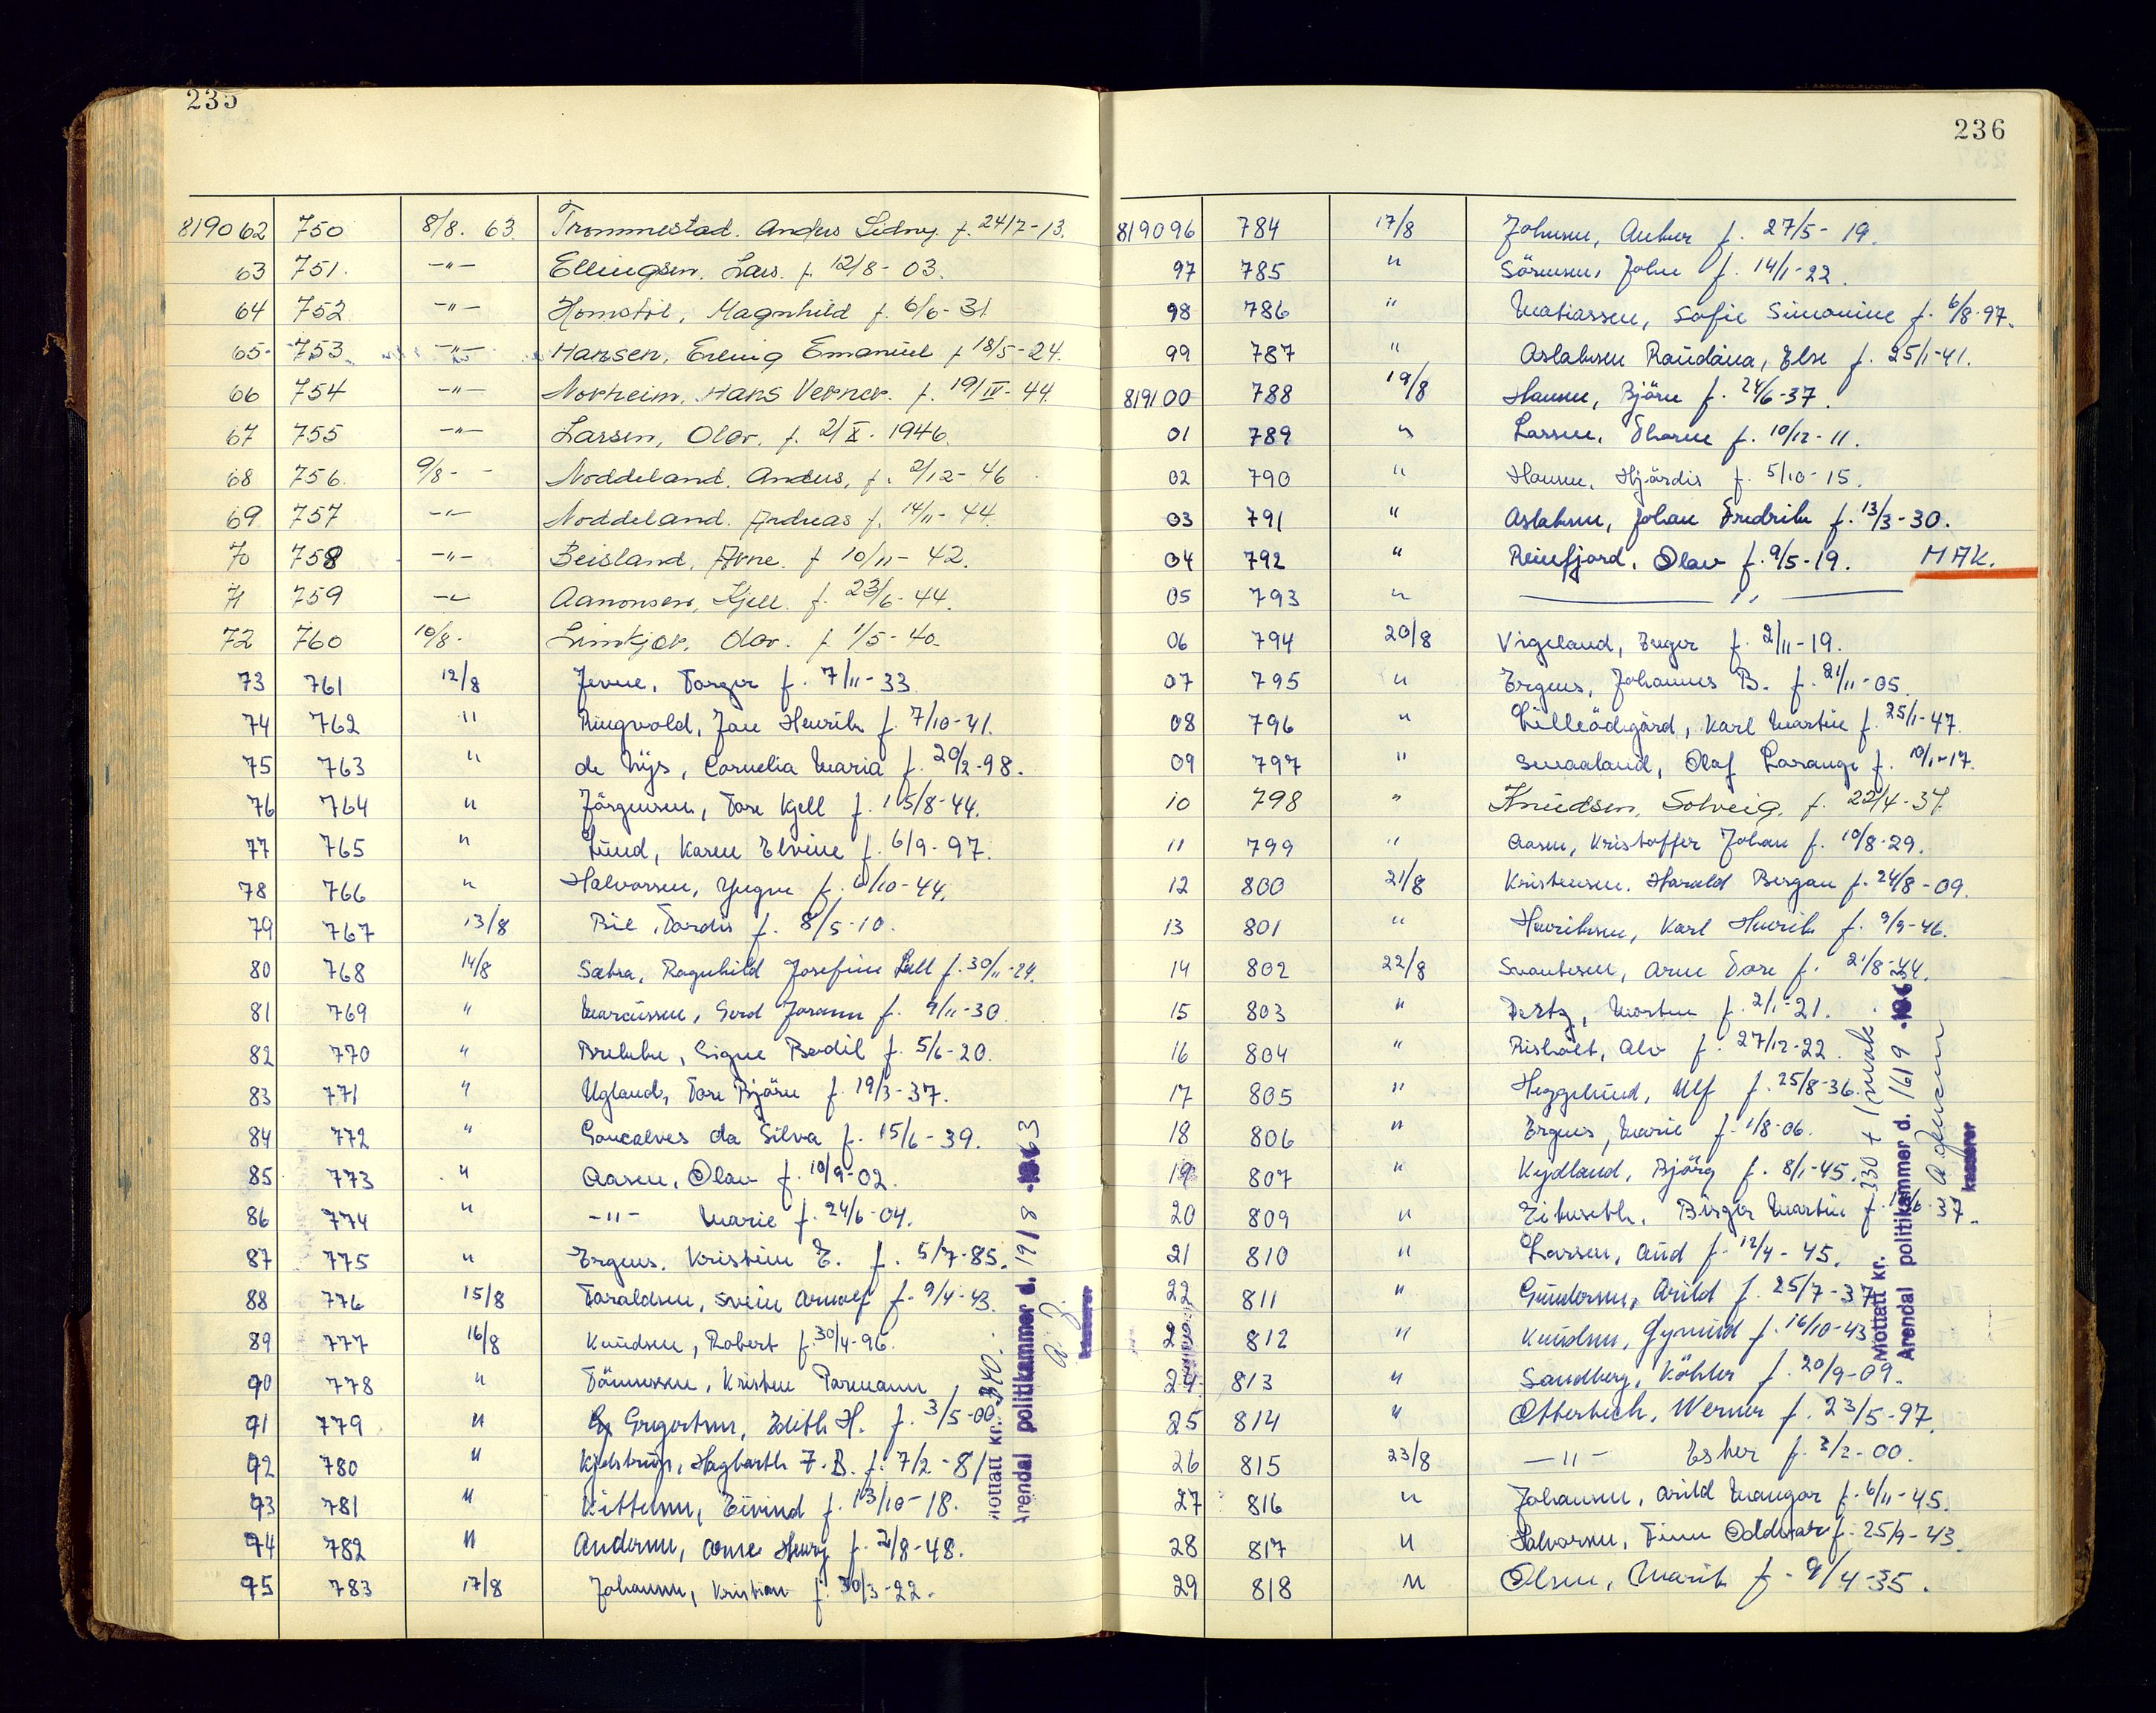 235
819062 750 8/8. 63. Trommestad. Anders Sidny f. 24/7-13.
63 751. -"- Ellingsen. Lars. f. 12/8-03.
64 752 -"- Homstöl, Magnhild f. 6/6-31
65 753 -"- Hansen, Erling Emanuel f 18/5-24.
66 754 -"- Norheim, Hans Verner. f. 19/IV-44
67 755 -"- Larsen, Olav. f. 2/X. 1946.
68 756. 9/8- - Noddeland. Anders, f. 2/12-46
69 757 -"- Noddeland. Andreas f. 14/11-44.
70 758 -"- Beisland, Arne. f 10/11-42.
71 759 -"- Aanonsen, Kjell. f. 23/6-44.
72 760 10/8. Limkjær, Olav. f 1/5-40.
73 761 12/8 Jevne, Torger f. 7/11-33
74 762 " Ringvold, Jan Henrik f. 7/10-41.
75 763 " de Nijs, Cornelia Maria f. 20/2-98.
76 764 " Jörgensen, Tore Kjell f. 15/8-44.
77 765 " Lund, Karen Elvine f. 6/9-97.
78 766 " Halvorsen, Yngve f. 6/10-44.
79 767 13/8 Bie, Tordis f. 8/5-10.
80 768 14/8 Sætra, Ragnhild Josefine f. 30/11-24.
81 769 " Marcussen, Gerd Jorunn f. 9/11-30
82 770 " Brekke, Signe Bodil f. 5/6-20.
83 771 " Ugland, Tore Björn f. 19/3-37.
84 772 " Goncalves da Silva f. 15/6-39.
85 773 " Aasen, Olav f. 10/9-02.
86 774 " -"- Marie f. 24/6-04.
87 775 " Ergens. Kristine E. f. 5/7-85.
88 776 15/8 Taraldsen, Svein Arnolf f. 9/4-43.
89 777 16/8 Knudsen, Robert f. 30/4-96.
90 778 " Tönnessen, Kristen Parmann
91 779 " Gregertsen, Edith H. f. 3/5-00
92 780 " Kjelstrup, Hagbarth F.B. f. 7/2-81
93 781 " Kittelsen, Eivind f. 13/10-18.
94 782 " Andersen, Arne Henry f. 2/8-48.
95 783 17/8 Johansen, Kristian f. 30/3-22.
Mottatt kr. 340.
Arendal politikammer d. 19/8 1963
kasserer
236
819096 784 17/8 Johnsen, f. 27/5-19.
97 785 " Sörensen, John f. 14/1-22
98 786 " Matiassen, Sofie Simonine f. 6/8-97.
99 787 " Aslaksen Raudåna, Else f. 25/1-41.
819100 788 19/8 Hansen, Björn f. 24/6-37.
01 789 " Larsen, Thorne f. 10/12-11.
02 790 " Hansen, Hjördis f. 5/10-15.
03 791 " Aslaksen, Johan Fredrik f. 13/3-30.
04 792 " Reinfjord, Olav f. 9/5-19. MAK.
05 793 " —— " ——
06 794 20/8 Vigeland, Inger f. 2/11-19.
07 795 " Ergens, Johannes B. f. 21/11-05.
08 796 " Lilleödegård, Karl Martin f. 25/1-47.
09 797 " Smaaland, Olaf Larange f. 10/1-17.
10 798 " Knudsen, Solveig. f. 22/4-37.
11 799 " Aasen, Kristoffer Johan f. 10/8-29.
12 800 21/8 Kristensen. Harald Bergan f. 24/8-09.
13 801 " Henriksen, Karl Henrik f. 9/9-46.
14 802 22/8 Svantesen, Arne Tore f. 21/8-44.
15 803 " Dertz, Morten f. 2/1-21.
16 804 " Risholt, Alv f. 27/12-22.
17 805 " Heggelund, Ulf f. 25/8-36.
18 806 " Ergens, Marie f. 1/8-06.
19 807 " Kydland, Björg f. 8/1-45.
20 809 " Eikeseth, Birger Martin f. 37.
21 810 " Larsen, Aud f. 12/4-45.
22 811 " Gundersen, Arild f. 25/7-37
23 812 " Knudsen, Gymund f. 16/10-43
24 813 " Sandberg, Köhler f. 20/9-09.
25 814 " Otterbech, Werner f. 23/5-97.
26 815 23/8 -"- Esther f. 3/2-00.
27 816 " Johansen, Arild Mangor f. 6/11-45.
28 817 " Halvorsen, Finn Oddvar f. 25/9-43.
29 818 " Olsen, Marit f. 9/4-35.
Mottatt kr. 330 + 1 mak
Arendal politikammer d. 16/9 1963
kasserer